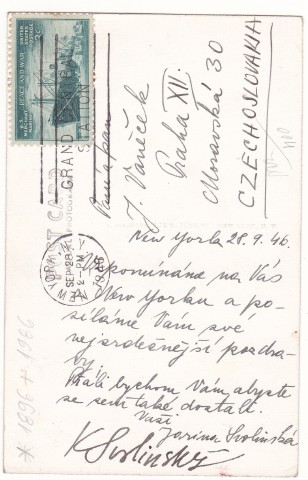 U.S. MERCHANT MARINE
PEACE AND WAR
UNITED STATES POSTAGE
3¢
GRAND
STATION
Pan a paní
J. Vaněček
Praha XII.
Moravská 30
CZECHOSLOVAKIA
NEW YORK, N.Y.
SEP 28
2-PM
1946
POST CARD
New York 28. 9. 46.
Vzpomínáme na Vás
v New Yorku a po-
síláme Vám své
nejsrdečnější pozdra-
vy!
Přáli bychom Vám abyste
se sem také dostali.
Vaši
Jarina Svolinská
K Svolinský
* 1896 + 1986